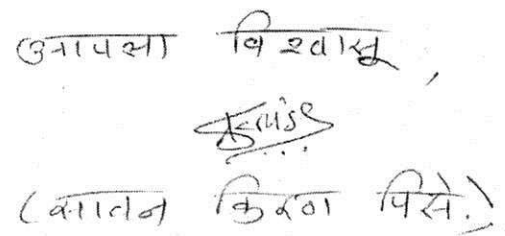 आपला विश्वासू,
(सातन किरण पिसे.)